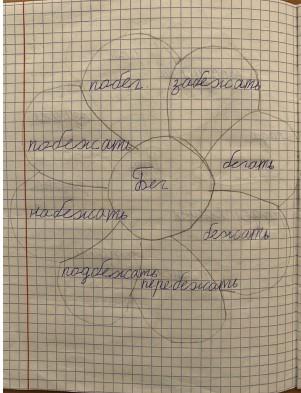 побег
забежать
побежать
бегать
Бег
набежать
бежать
подбежать
перебежать